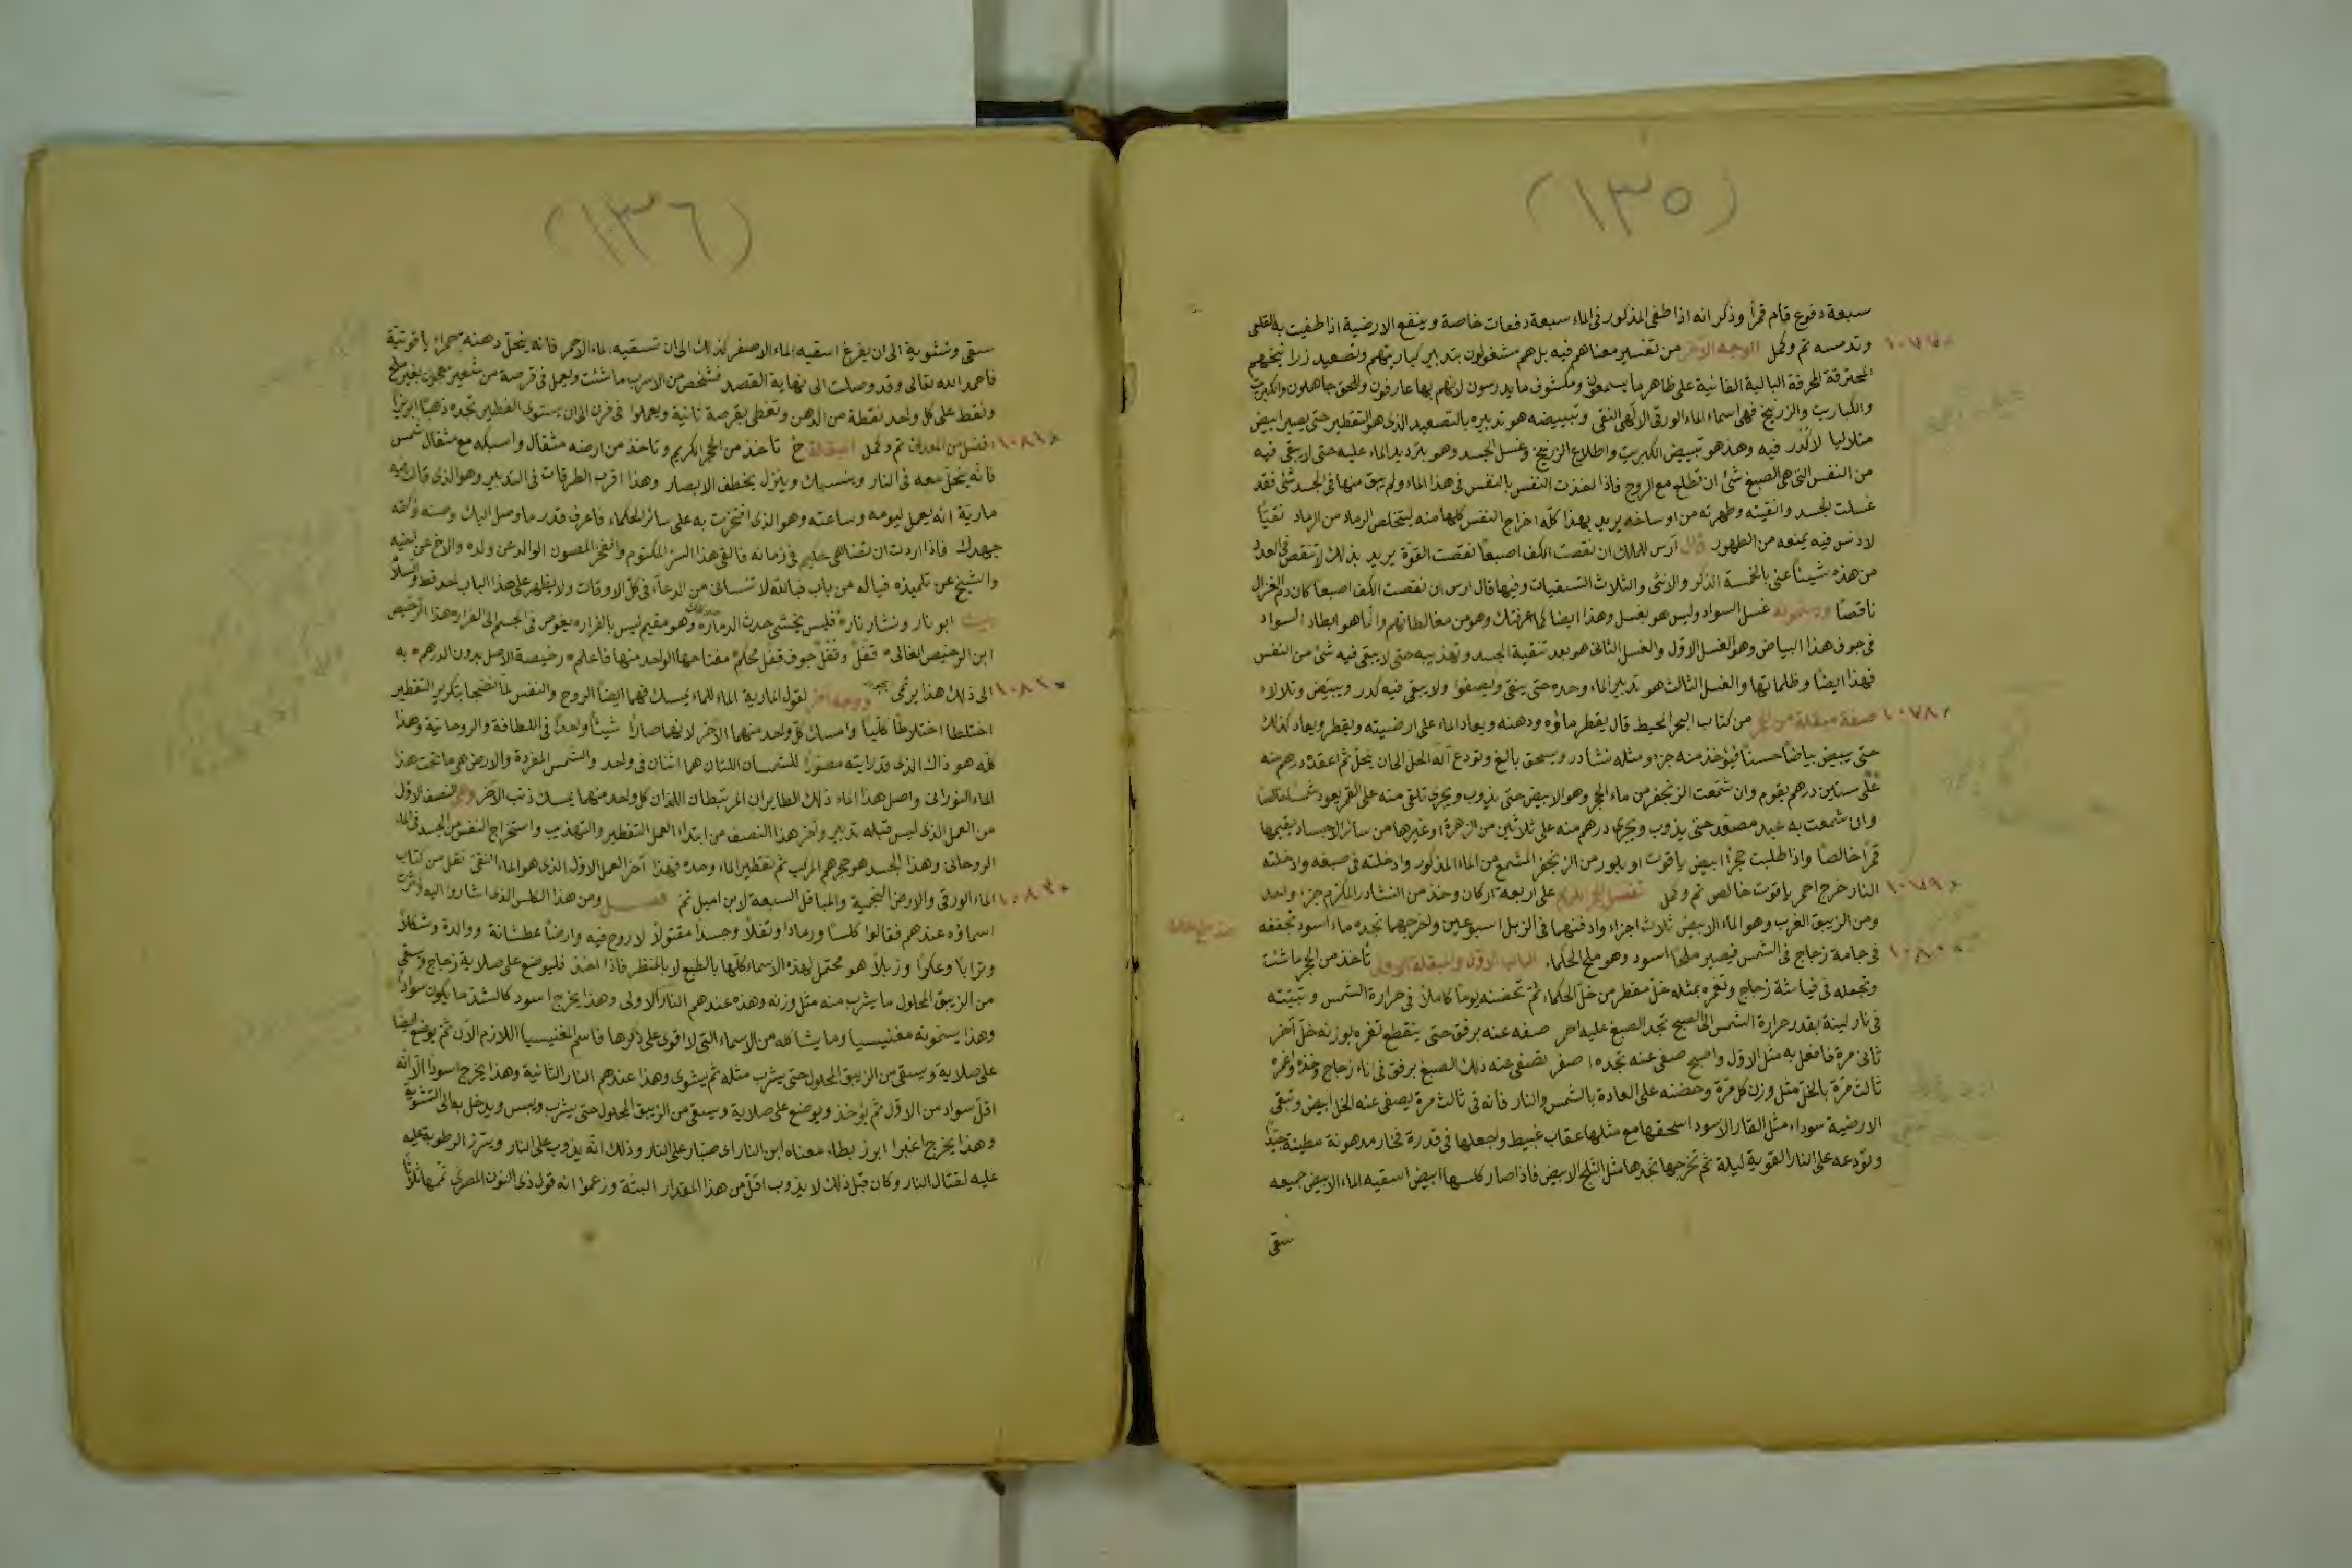 (١٣٥)
سبعة دفوع قام قمرا وذكر انه اذا طفى المذكور فى الماء سبعة دفعات خاصة وينفع الارضية اذا طفيت به القلعى
١٠٧٧ وتدمسه تم وكمل الوجه الآخر من تفسير معناهم فيه بل هم مشغولون بتدبير كباريتهم وتصعيد زرانيخهم
المحترقة المحرقة البالية الفانية على ظاهر ما يسمعون ومكشوف ما يدرسون لانهم بها عارفون وللحق جاهلون والكبريت
والكباريت والزرنيخ فهى اسماء الماء الورقى الالهى النقى وتبييضه هو تدبيره بالتصعيد الذى هو التقطير حتى يصير ابيض
متلاليا لا كدر فيه وهذ هو تبييض الكبريت واطلاع الزرنيخ وغسل الجسد وهو بترديد الماء عليه حتى لا يبقى فيه
من النفس التى هى الصبغ شئ ان تطلع مع الروح فاذا اخذت النفس بالنفس فى هذا الماء ولم يبق منها فى الجسد شئ فقد
غسلت الجسد وانقيته وطهرته من اوساخه يريد بهذا كله اخراج النفس كلها منه ليتخلص الرماد من الرماد نقيا
لا دنس فيه يمنعه من الطهور قال آرس للملك ان نقصت الكف اصبعا نقصت القوة يريد بذلك لا تنقص فى العدد
من هذه شيئا عنى بالخمسة الذكر والانثى والثلاث التسقيات وفيها قال ارس ان نقصت الكف اصبعا كان دم الغزال
ناقصا ويسمونه غسل السواد وليس هو بغسل وهذا ايضا كما عرفتك وهو من مغالطاتهم وانما هو ابطان السواد
فى جوف هذا البياض وهو الغسل الاول والغسل الثانى هو بعد تنقية الجسد وتهذيبه حتى لا يبقى فيه شئ من النفس
فهذا ايضا وظلماتها والغسل الثالث هو تدبير الماء وحده حتى ينقى ويصفوا ولا يبقى فيه كدر ويبيض وتلالاء
١٠٧٨ صفة مبقلة من من كتاب البحر المحيط قال يقطر ماؤه ودهنه ويعاد الماء على ارضيته ويقطر ويعاد كذلك
حتى يبيض بياضا حسنا فيؤخذ منه جزء ومثله نشادر ويسحق بالغ وتودع آلة الحل الى ان ينحل ثم اعقده درهم منه
على ستين درهم يقوم وان شمعت الزنجفر من ماء الحجر وهو الابيض حتى يذوب ويجرى تلقى منه على القمر يعود شمسا خالصا
وان شمعت به عبد مصعد حتى يذوب ويجرى درهم منه على ثلاثين من الزهرة او غيرها من سائر الاجساد يقيمها
قمرا خالصا واذا طلبت حجرا ابيض ياقوت او بلور من الزنجفر المشمع من الماء المذكور وادخلته فى صبغه وادخلته
١٠٧٩ النار خرج احمر ياقوت خالص تم وكمل على اربعة اركان وخذ من النشادر المكرم جزء واحد
ومن الزيبق الغرب وهو الماء الابيض ثلاث اجزاء وادفنهما فى الزبل اسبوعين واخرجهما تجده ماء اسود تجففه
١٠٨٠ فى جامة زجاج فى الشمس فيصير ملحا اسود وهو ملح الحكماء الباب الاول والمبقلة الاولى تأخذ من الحجر ما شئت
وتجعله فى قياشة زجاج وتغمره بمثله خل مقطر من خل الحكماء ثم تحضنه يوما كاملا فى حرارة الشمس وتبيته
فى نار لينة بقدر حرارة الشمس الى الصبح تجد الصبغ عليه احمر صفه عنه برفق حتى ينقطع تغمره بوزنه خل آخر
ثانى مرة فافعل به مثل الاول واصبح صفى عنه تجده اصفر تصفى عنه ذلك الصبغ برفق فى اناء زجاج وخذه واغمره
ثالث مرة بالخل مثل وزن كل مرة وحضنه على العادة بالشمس والنار فانه فى ثالث مرة يصفى عنه الخل ابيض وتبقى
الارضية سوداء مثل القار الاسود اسحقها مع مثلها عقاب غبيط واجعلها فى قدرة فخار مدهونة مطينة جيدا
وتودعه على النار القوية ليلة ثم تخرجها تجدها مثل الثلج الابيض فاذا صار كلسها ابيض اسقيه الماء الابيض جميعه
سقى
(١٣٦)
سقى وتشوية الى ان يفرغ اسقيه الماء الاصفر كذلك الى ان تسقيه الماء الاحمر فانه ينحل دهنه حمرا ياقوتية
فاحمد الله تعالى وقد وصلت الى نهاية القصد فشخص من الاسرب ما شئت ويعمل فى قرصة من شعير معجون بغير ملح
ونقط على كل واحد نقطة من الدهن وتغطى بقرصة ثانية ويعملوا فى فرن الى ان يستوى الفطير تجده ذهبا ابريزا
١٠٨١ افضل من المعدن تم وكمل المبقلة خ تأخذ من الحجر الكريم وتاخذ من ارضه مثقال واسبكه مع مثقال شمس
فانه ينحل معه فى النار وينسبك وينزل يخطف الابصار وهذا اقرب الطرقات فى التدبير وهو الذى قالت فيه
مارية انه يعمل ليومه وساعته وهو الذى افتخرت به على سائر الحكماء فاعرف قدر ما وصل اليك وصنه واكتمه
جهدك فاذا اردت ان تضاهى حكيم فى زمانه فالقى هذا السر المكتوم والفخر المصون الوالد عن ولده والاخ عن اخيه
والشيخ عن تلميذه فياله من باب فبالله لا تنسانى من الدعاء فى كل الاوقات ولا يظهر على هذا الباب احد قط والسلام
ابو نار ونشار ناره فليس يخشى حدث الدماره وهو مقيم ليس بالفراره يغوص فى الجسم الى القراره هذا الرخيص
ابن الرخيص الغالى ٭ قفل وقفل جوف قفل محكم ٭ مفتاحها الواحد منها فاعلم ٭ رخيصة الاصل بدون الدرهم ٭ به
١٠٨٢ الى ذلك هذا يرتمى ووجه آخر لقول المارية الماء للماء يمسك فهما ايضا الروح والنفس لما انضجا بتكرير التقطير
اختلطا اختلاطا كليا وامسك كل واحد منهما الآخر لانهما صارا شيئا واحدا فى اللطافة والروحانية وهذا
كله هو ذاك الذى قد رايته مصورا للشمسان اللتان هما اثنان فى واحد والشمس المفردة والارض هى ما تحت هذا
الماء النورانى واصل هذا الماء ذلك الطايران المرتبطان اللذان كل واحد منهما يمسك ذنب الآخر وهى النصف الاول
من العمل الذى ليس قبله تدبير وآخر هذا النصف من ابتداء العمل التقطير والتهذيب واستخراج النفس من الجسد فى الماء
الروحانى وهذا الجسد هو حجرهم المركب ثم تقطير الماء وحده فهذا آخر العمل الاول الذى هو الماء النقى نقل من كتاب
١٠٨٣ الماء الورقى والارض النجمية والمباقل السبعة لابن اميل تم فصل ومن هذا الكلس الذى اشاروا اليه
اسماؤه عندهم فقالوا كلسا ورمادا وتفلا وجسدا مقتولا لا روح فيه وارضا عطشانة ووالدة وشكلا
وترابا وعكرا وزبلا هو محتمل لهذه الاسماء كلها بالطبع لا بالمنظر فاذا اخذ فليوضع على صلاية زجاج ويسقى
من الزيبق المحلول ما يشرب منه مثل وزنه وهذه عندهم النار الاولى وهذا يخرج اسود كاشد ما يكون سوادا
وهذا يسمونه مغنيسيا وما يشاكله من الاسماء التى لا اقوى على ذكرها فاسم المغنيسيا اللازم الآن ثم يوضع ايضا
على صلاية ويسقى من الزيبق المحلول حتى يشرب مثله ثم يشوى وهذا عندهم النار الثانية وهذا يخرج اسودا الا انه
اقل سواد من الاول ثم يؤخذ ويوضع على صلاية ويسقى من الزيبق المحلول حتى يشرب ويبس ويدخل به الى التشوية
وهذا يخرج اغبرا ابرز بطاء معناه ابن النار اى صبار على النار وذلك انه يذوب على النار ويترز الرطوبة عليه
عليه لقتال النار وكان قبل ذلك لا يذوب اقل من هذا المقدار البتة وزعموا انه قول ذى النون المصرى ثمها ثلاثا